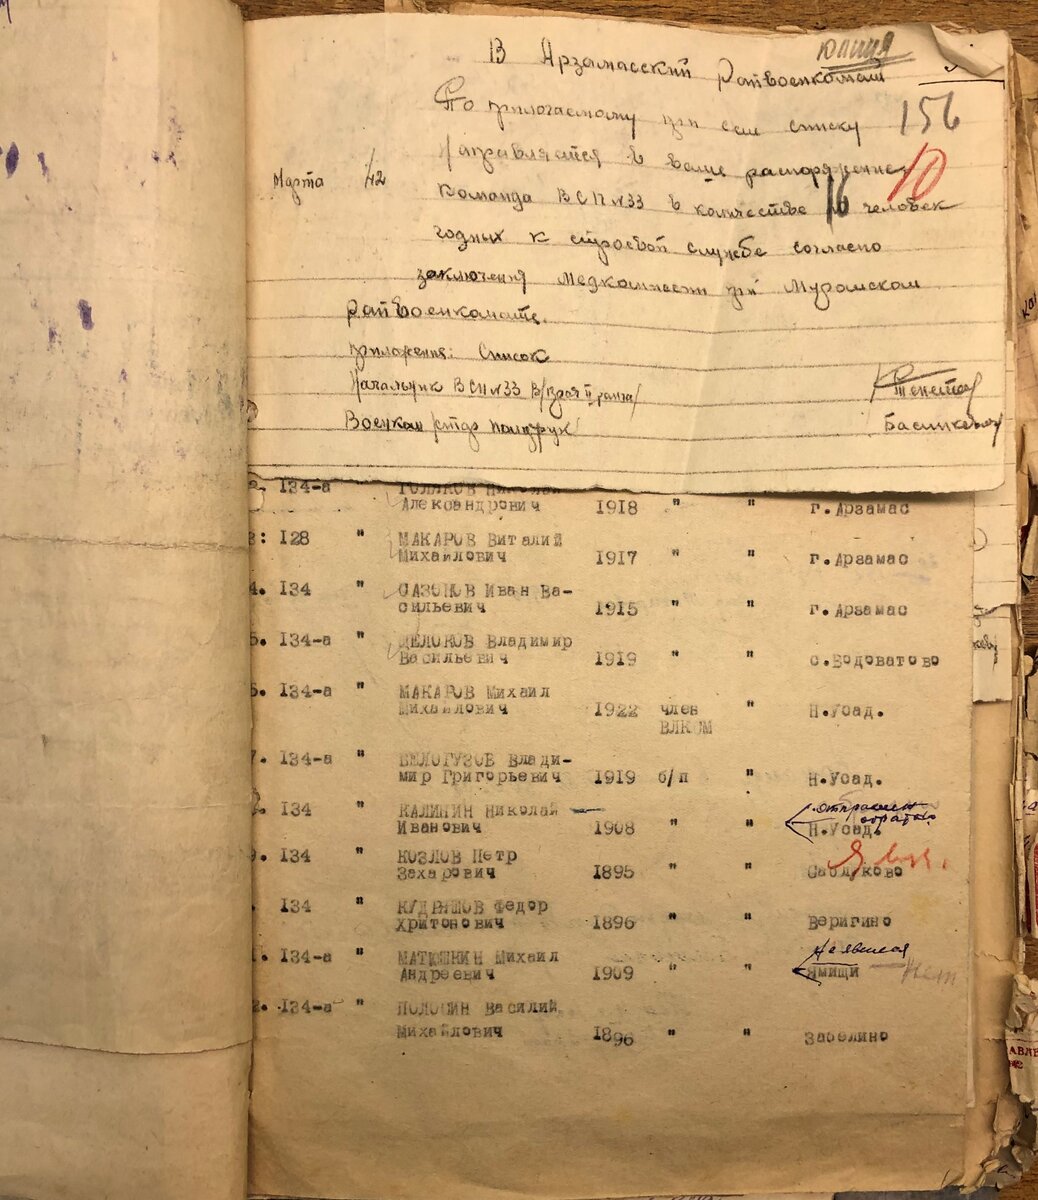 В Арзамасский Райвоенкомат
156
По прилогаемому при сем списку
Направляйтся в ваше распоряжение
10
Марта 42
Команда ВСП №33 в количестве 16 человек
годных к строевой службе согласно
заключения медкомиссии при Муромском
Райвоенкомате.
приложения: Список
Начальник ВСП №33 В/врач II ранга/
Военком /стар политрук/
134-а ГОЛЯКОВ Николай
Александрович 1918 " " г.Арзамас
128 " МАКАРОВ Виталий
Михайлович 1917 " " г.Арзамас
4. 134 " САЗОНОВ Иван Ва-
сильевич 1915 " " г.Арзамас
5. 134-а " Владимир
Васильевич 1919 " " с.Водоватово
134-а " МАКАРОВ Михаил
Михайлович 1922 член " Н.Усад.
ВЛКСМ
7. 134-а " БЕЛОГУЗОВ Влади-
мир Григорьевич 1919 б/п " Н.Усад.
134 " КАЛИНИН Николай отправлен
обратно
Иванович 1908 " " Н.Усад.
9. 134 " КОЗЛОВ Петр
Захарович 1895 " " Саблуково
134 " КУДРЯШОВ Федор
Хритонович 1896 " " Веригино
1. 134-а " МАТЮШКИН Михаил Не явился
Андреевич 1909 " " Ямищи нет
2. 134-а " Василий
Михайлович 1896 " " Забелино